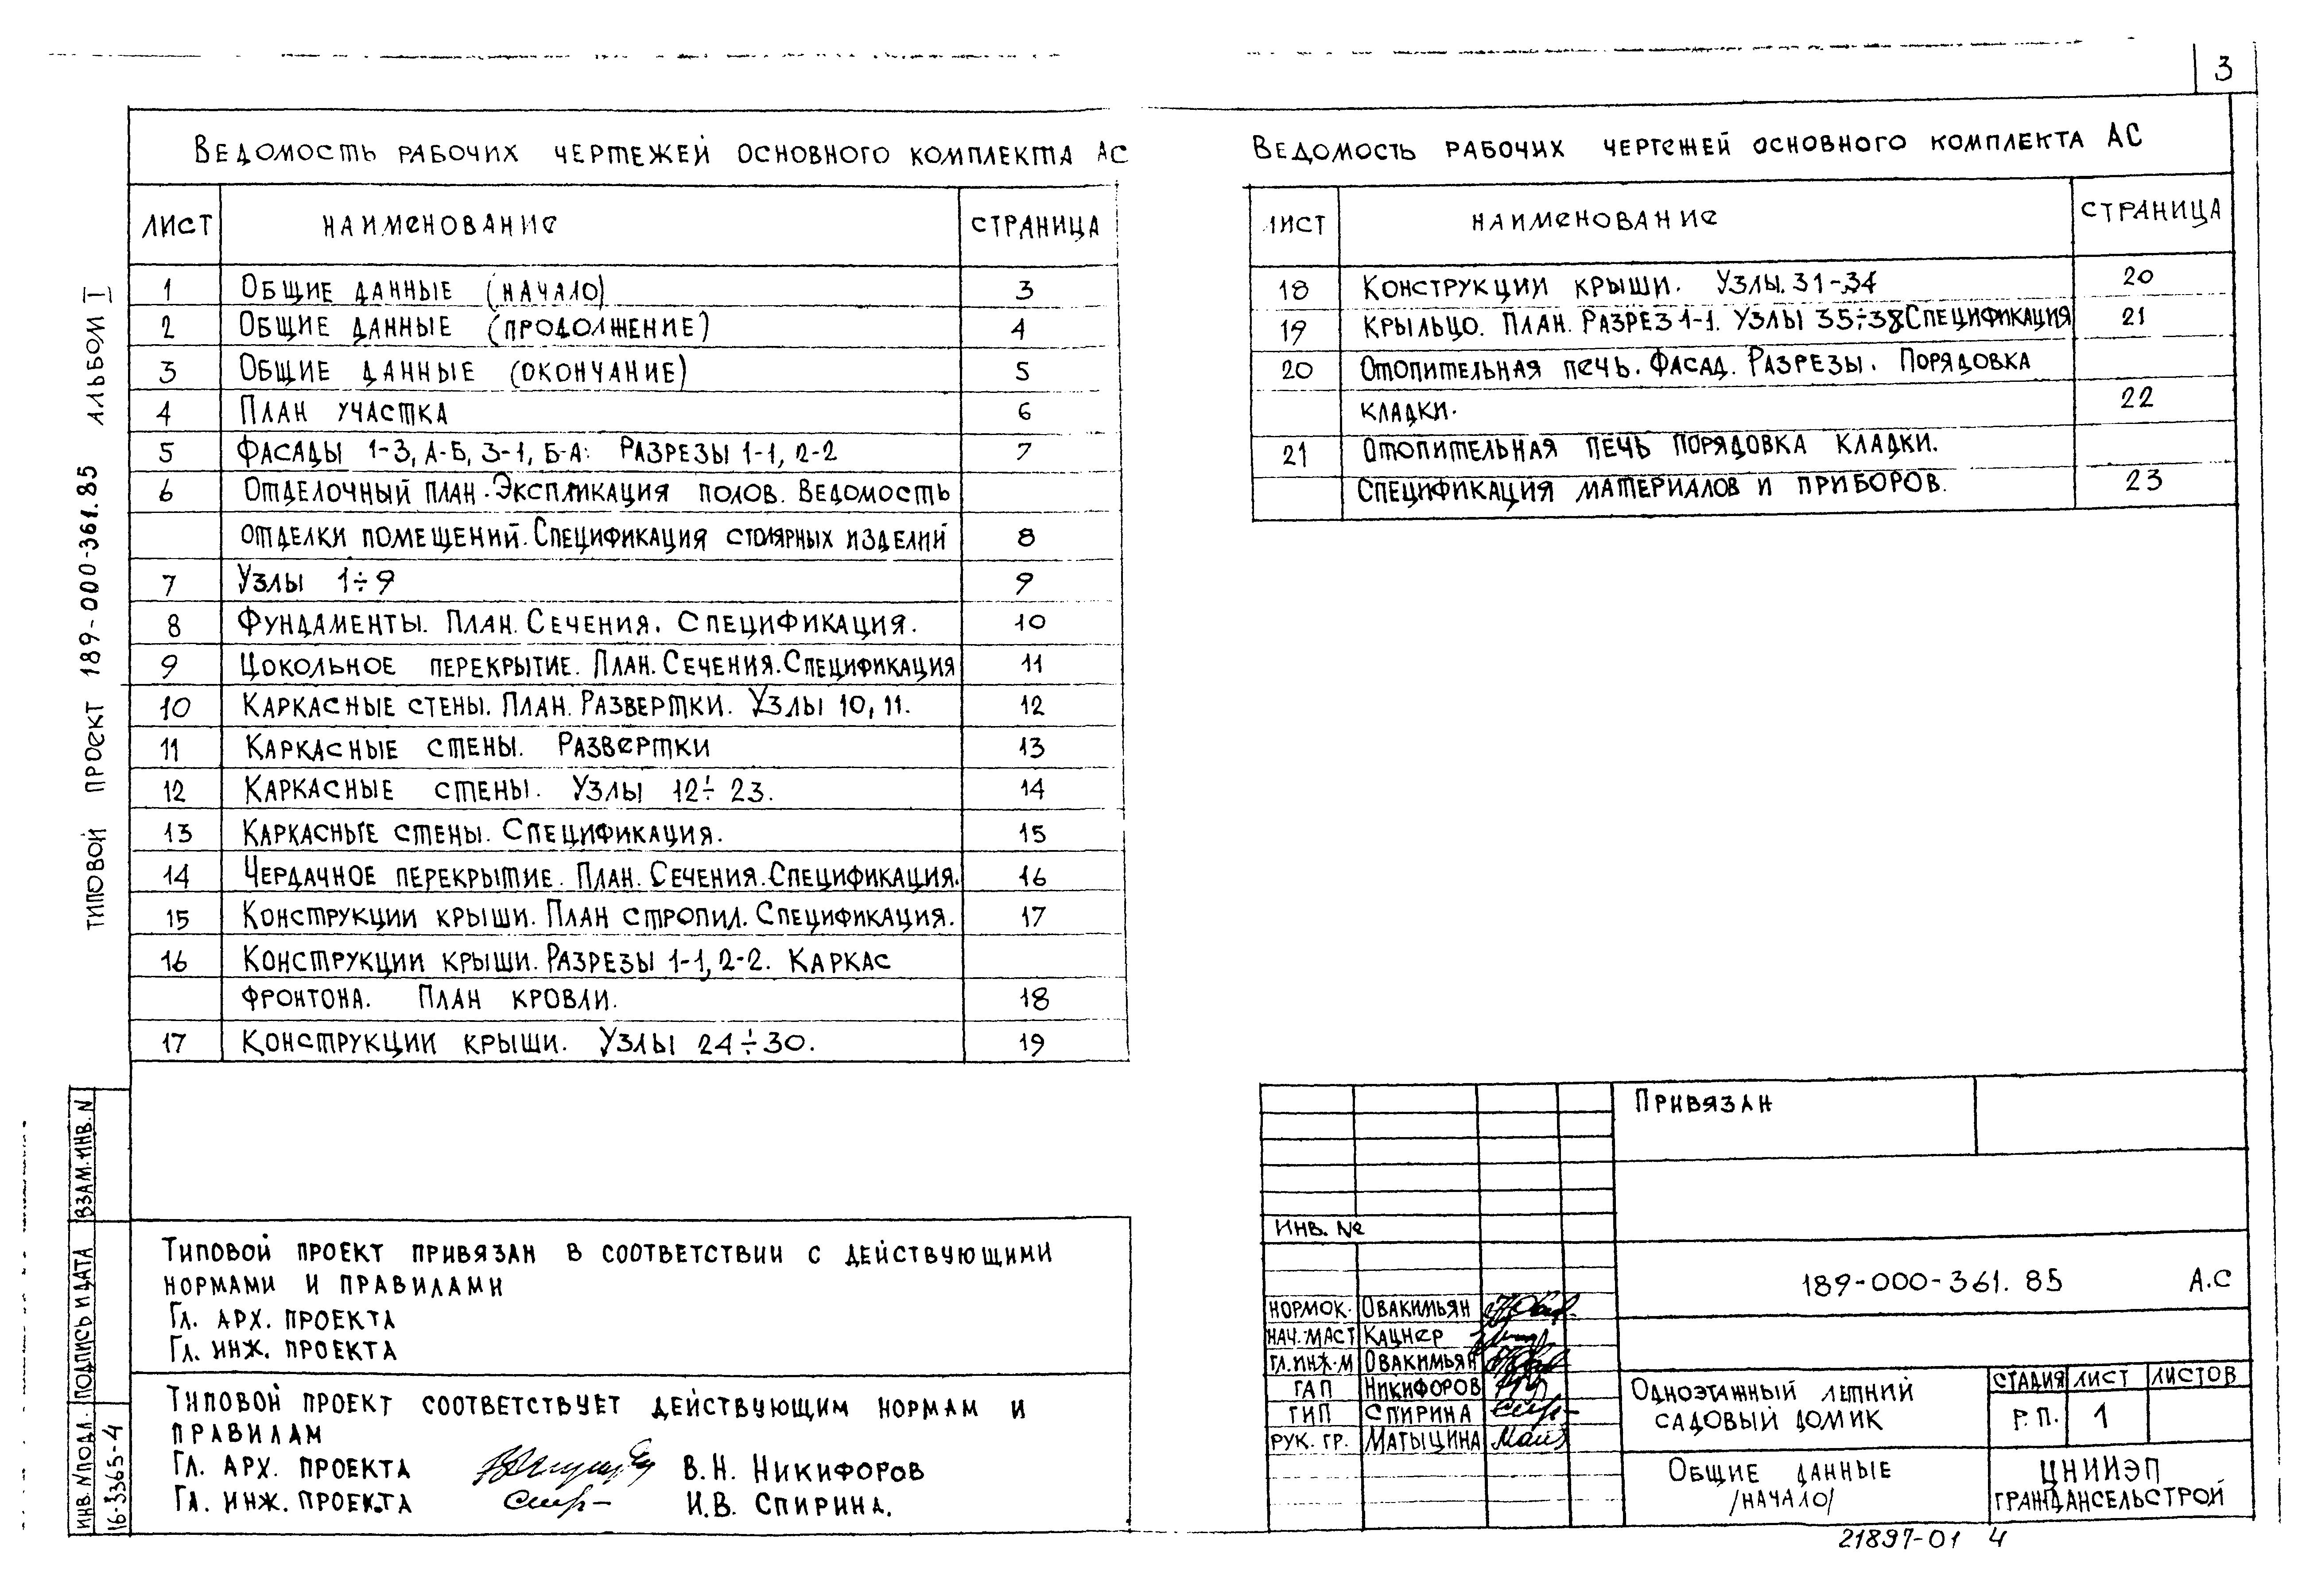 3
Ведомость рабочих чертежей основного комплекта АС
лист наименование страница
1 Общие данные (начало) 3
2 Общие данные (продолжение) 4
3 Общие данные (окончание) 5
4 План участка 6
5 Фасады 1-3, А-Б, 3-1, Б-А. Разрезы 1-1, 2-2 7
6 Отделочный план. Экспликация полов. Ведомость
отделки помещений. Спецификация столярных изделий 8
7 Узлы 1÷9 9
8 Фундаменты. План. Сечения. Спецификация. 10
9 Цокольное перекрытие. План. Сечения. Спецификация 11
10 Каркасные стены. План. Развертки. Узлы 10, 11. 12
11 Каркасные стены. Развертки 13
12 Каркасные стены. Узлы 12÷23. 14
13 Каркасные стены. Спецификация. 15
14 Чердачное перекрытие. План. Сечения. Спецификация. 16
15 Конструкции крыши. План стропил. Спецификация. 17
16 Конструкции крыши. Разрезы 1-1, 2-2. Каркас
фронтона. План кровли. 18
17 Конструкции крыши. Узлы 24÷30. 19
Ведомость рабочих чертежей основного комплекта АС
лист наименование страница
18 Конструкции крыши. Узлы. 31-34 20
19 Крыльцо. План. Разрез 1-1. Узлы 35÷38 Спецификация 21
20 Отопительная печь. Фасад. Разрезы. Порядовка
кладки. 22
21 Отопительная печь порядовка кладки.
Спецификация материалов и приборов. 23
Типовой проект 189-000-361.85 Альбом I
Взам. инв. N
Подпись и дата
Инв. N подл.
16-3365-4
Типовой проект привязан в соответствии с действующими
нормами и правилами
Гл. арх. проекта
Гл. инж. проекта
Типовой проект соответствует действующим нормам и
правилам
Гл. арх. проекта В.Н. Никифоров
Гл. инж. проекта И.В. Спирина.
Привязан
Инв. №
189-000-361.85 А.С
Нормок. Овакимьян
Нач. маст Кацнер
Гл. инж. м Овакимьян
ГАП Никифоров
ГИП Спирина
Рук. гр. Матыцина
Одноэтажный летний
садовый домик
стадия лист листов
Р.П. 1
Общие данные
/начало/
ЦНИИЭП
граждансельстрой
21897-01 4